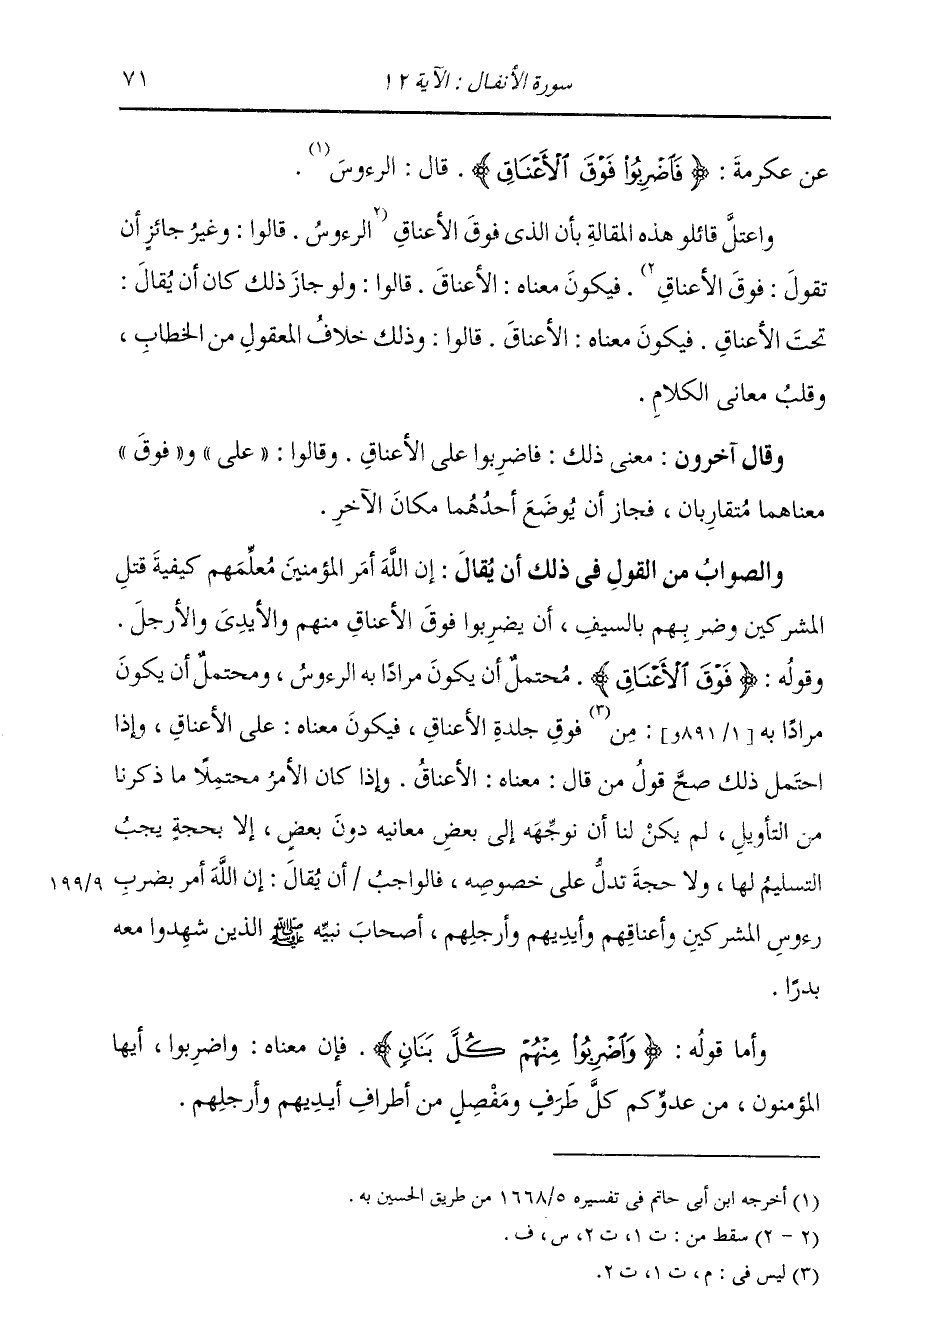 سورة الأنفال : الآية ١٢ ٧١
عن عكرمةَ : ﴿ فَٱضْرِبُوا۟ فَوْقَ ٱلْأَعْنَاقِ ﴾ . قال : الرءوسَ (١) .
واعتلَّ قائلو هذه المقالةِ بأن الذى فوقَ الأعناقِ (٢ الرءوسُ . قالوا : وغيرُ جائزٍ أن
تقولَ : فوقَ الأعناقِ ٢) . فيكونَ معناه : الأعناقَ . قالوا : ولو جازَ ذلك كان أن يُقالَ :
تحتَ الأعناقِ . فيكونَ معناه : الأعناقَ . قالوا : وذلك خلافُ المعقولِ من الخطابِ ،
وقلبُ معانى الكلامِ .
وقال آخرون : معنى ذلك : فاضرِبوا على الأعناقِ . وقالوا : « على » و« فوقَ »
معناهما مُتقارِبان ، فجاز أن يُوضَعَ أحدُهُما مكانَ الآخرِ .
والصوابُ من القولِ فى ذلك أن يُقالَ : إن اللَّهَ أمَر المؤمنين مُعلِّمَهم كيفيةَ قتلِ
المشركين وضربِهم بالسيفِ ، أن يضرِبوا فوقَ الأعناقِ منهم والأيدِىَ والأرجلَ .
وقولُه : ﴿ فَوْقَ ٱلْأَعْنَاقِ ﴾ . مُحتملٌ أن يكونَ مرادًا به الرءوسُ ، ومحتملٌ أن يكونَ
مرادًا به [٨٩١/١و] : مِن (٣) فوقِ جلدةِ الأعناقِ ، فيكونَ معناه : على الأعناقِ ، وإذا
احتَمل ذلك صحَّ قولُ من قال : معناه : الأعناقُ . وإذا كان الأمرُ محتمِلًا ما ذكرنا
من التأويلِ ، لم يكنْ لنا أن نوجِّهَه إلى بعضِ معانيه دونَ بعضٍ ، إلا بحجةٍ يجبُ
التسليمُ لها ، ولا حجةَ تدلُّ على خصوصِه ، فالواجبُ / أن يُقالَ : إن اللَّهَ أمر بضربِ ١٩٩/٩
رءوسِ المشركين وأعناقِهم وأيدِيهم وأرجلِهم ، أصحابَ نبيِّه ﷺ الذين شهِدوا معه
بدرًا .
وأما قولُه : ﴿ وَٱضْرِبُوا۟ مِنْهُمْ كُلَّ بَنَانٍ ﴾ . فإن معناه : واضرِبوا ، أيها
المؤمنون ، من عدوِّكم كلَّ طَرَفٍ ومَفْصِلٍ من أطرافِ أيدِيهم وأرجلِهم .
(١) أخرجه ابن أبى حاتم فى تفسيره ١٦٦٨/٥ من طريق الحسين به .
(٢ - ٢) سقط من : ت ١، ت ٢، س، ف .
(٣) ليس فى : م، ت ١، ت ٢.